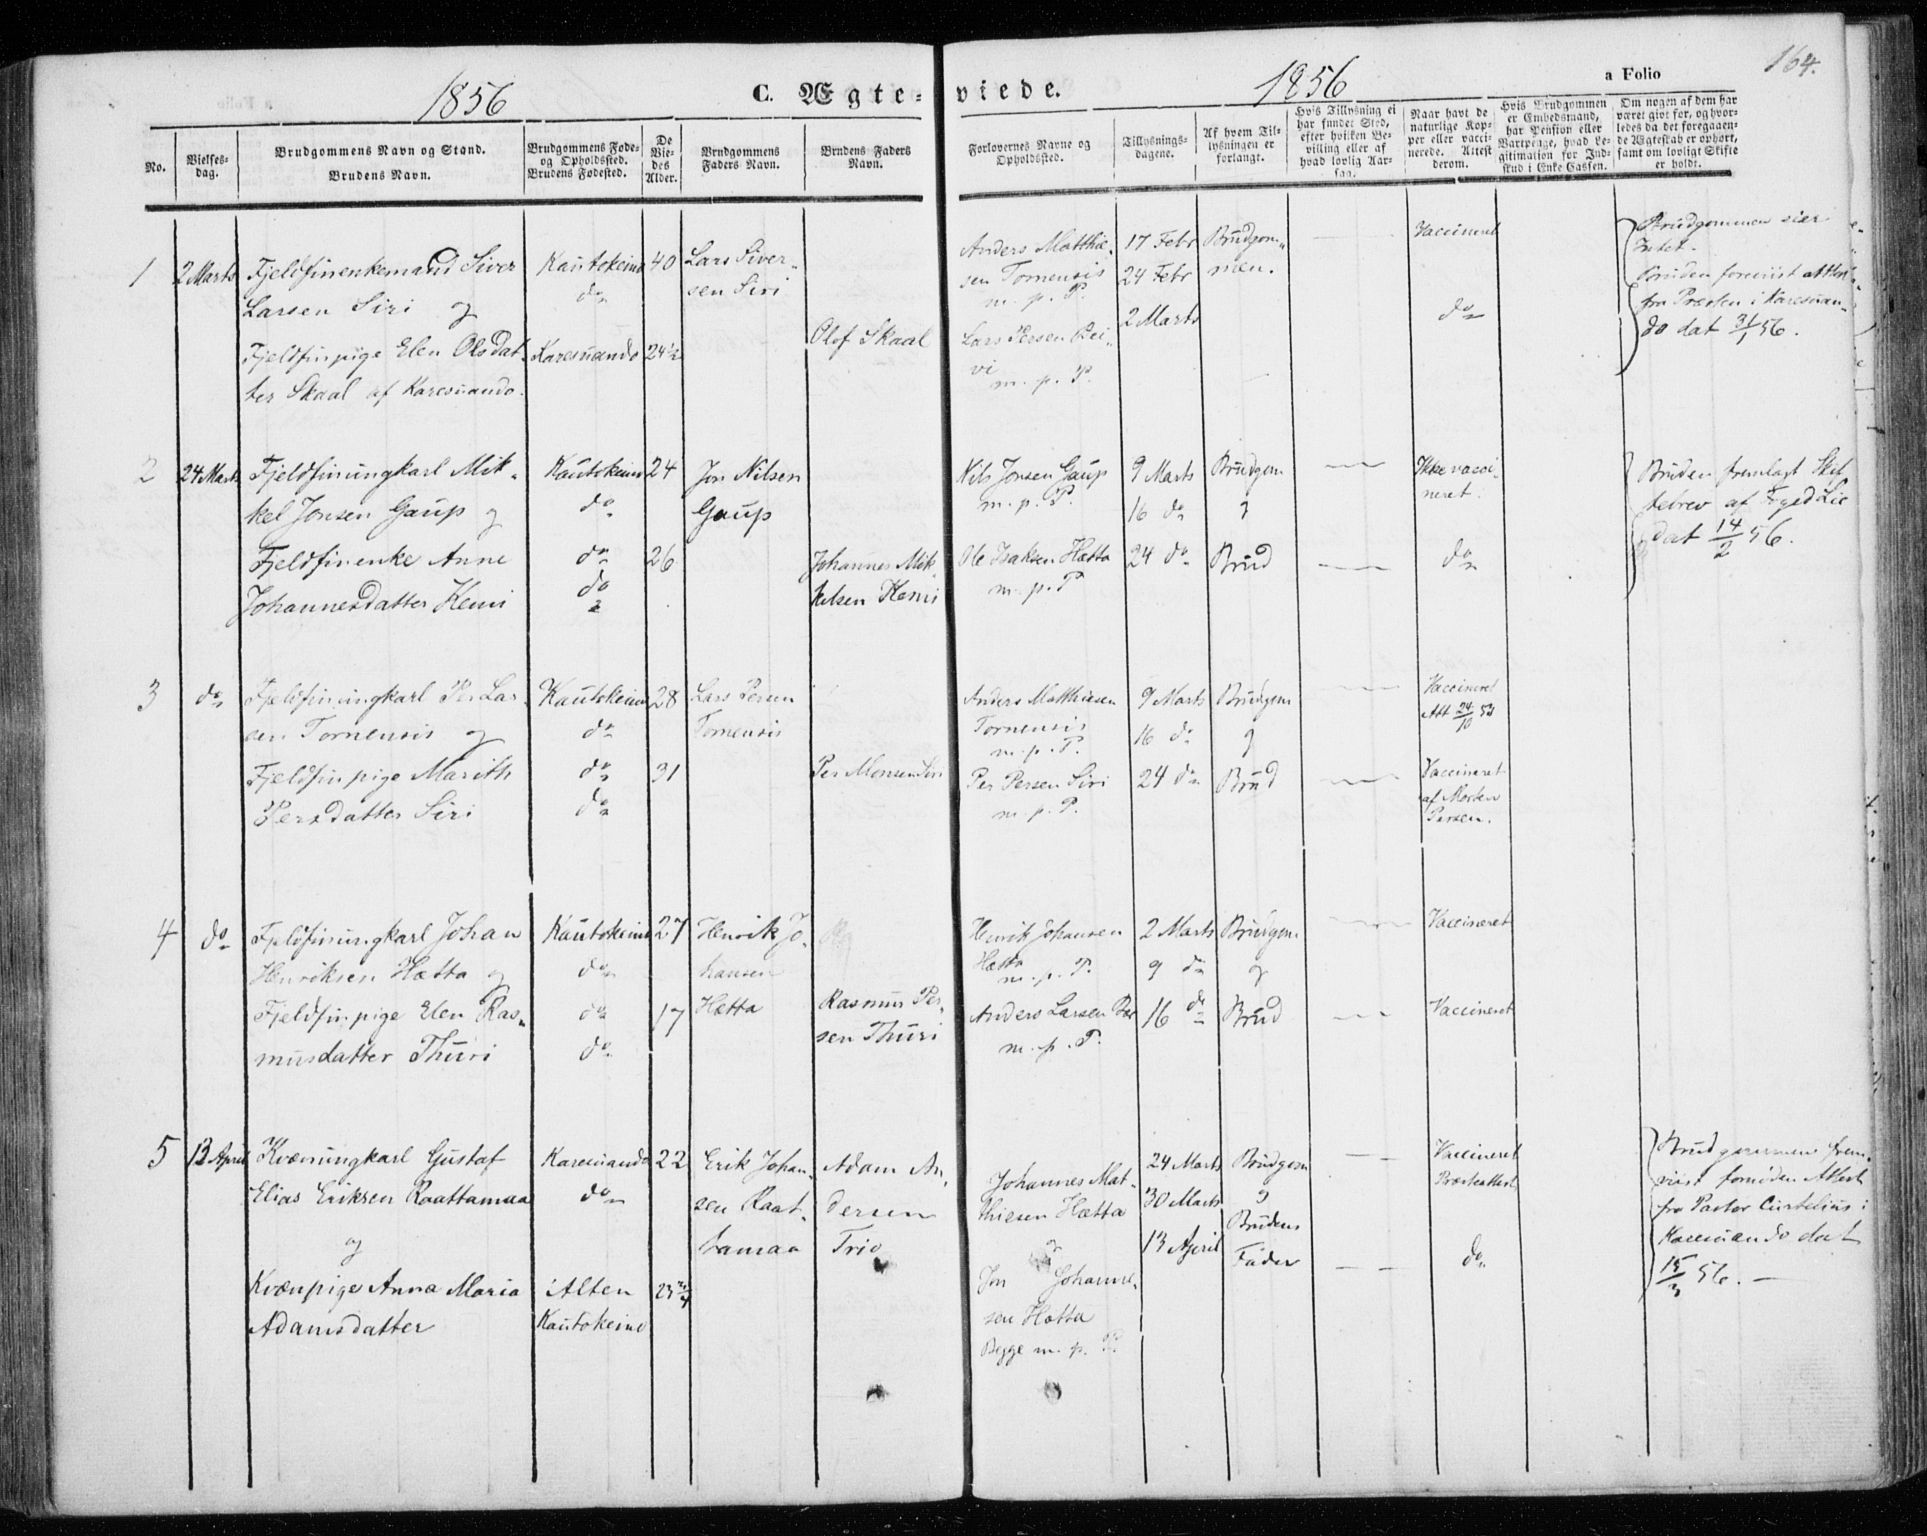 164.
1856
C. Ægte-viede.
1856
a Folio
No.
Vielses-
dag.
Brudgommens Navn og Stand.
Brudens Navn.
Brudgommens Føde-
og Opholdssted.
Brudens Fødested.
De
Vie-
des
Alder.
Brudgommens
Faders Navn.
Brudens Faders
Navn.
Forlovernes Navne og
Opholdssted.
Tillysnings-
dagene.
Af hvem Til-
lysningen er
forlangt.
Hvis Tillysning ei
har fundet Sted,
efter hvilken Be-
villing eller af
hvad lovlig Aar-
sag.
Naar havt de
naturlige Kop-
per eller vacci-
nerede. Attest
derom.
Hvis Brudgommen
er Embedsmand,
har Pension eller
Vartpenge, hvad Le-
gitimation for Ind-
skud i Enke Cassen.
Om nogen af dem har
været gift før, og hvor-
ledes da det foregaaen-
de Ægteskab er ophørt,
samt om lovligt Skifte
er holdt.
1
2 Marts
Fjeldfinenkemand Siver
Larsen Siri og
Fjeldfinpige Elen Olsdat-
ter Skaal af Karesuando.
Kautokeino
do
Karesuando
40
24½
Lars Siver-
sen Siri
Olof Skaal
Anders Matthie-
sen Tornensis
m. p. P.
Lars Persen Pei-
vi
m. p. P.
17 Febr
24 Febr
2 Marts
Brudgom-
men.
Vaccineret
do
Brudgommen sier
Intet.
Bruden foreviist Attest
fra Præsten i Karesuan-
do dat 31/1 56.
2
24 Marts
Fjeldfinungkarl Mik-
kel Jonsen Gaup og
Fjeldfinenke Anne
Johannesdatter Kemi
Kautokeino
do
do
do
24
26
Jon Nilsen
Gaup
Johannes Mik-
kelsen Kemi
Nils Jonsen Gaup
m. p. P.
Ole Isaksen Hætta
m. p. P
9 Marts
16 do
24 do
Brudgom
og
Brud
Ikke vacci
neret.
do
Bruden fremlagt Skif
tebrev af Foged Lie
dat 14/2 56.
3
do
Fjeldfinungkarl Per Lar-
sen Tornensis og
Fjeldfinpige Marith
Persdatter Siri
Kautokeino
do
do
do
28
31
Lars Persen
Tornensis
Per Monsen Siri
Anders Matthiesen
Tornensis
m. p. P.
Per Persen Siri
m. p. P.
9 Marts
16 do
24 do
Brudgom
og
Brud
Vaccineret
Att 24/10 53
Vaccineret
af Morten
Persen.
4
do
Fjeldfinungkarl Johan
Henriksen Hætta og
Fjeldfinpige Elen Ras-
musdatter Thuri
Kautokeino
do
do
do
27
17
Henrik Jo-
hansen
Hætta
Rasmus Per-
sen Thuri
Henrik Johansen
Hætta
m. p. P.
Anders Larsen Bær
m. p. P.
2 Marts
9 do
16 do
Brudgom
og
Brud
Vaccineret
Vaccineret
5
13 April
Kvænungkarl Gustaf
Elias Eriksen Raattamaa
og
Kvænpige Anna Maria
Adamsdatter
Karesuando
do
Alten
Kautokeino
22
23¾
Erik Johan-
sen Raat-
tamaa
Adam An-
dersen
Trio
Johannes Mat-
thiesen Hætta
og
Jon Johanne-
sen Hætta
Begge m. p. P.
24 Marts
30 Marts
13 April
Brudgom
og
Brudens
Fader
Vaccineret
Præsteattest
do
Brudgommen frem-
viist fornøden Attest
fra Pastor Curtelius i
Karesuando dat
15/3 56. —